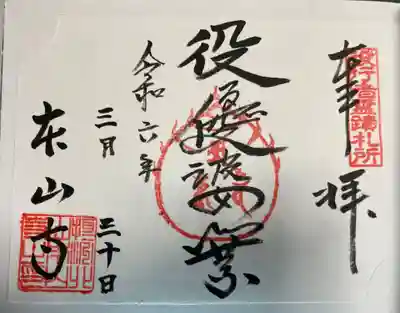 奉拝
役行者霊蹟札所
役優婆塞
令和六年
三月三十日
本山寺